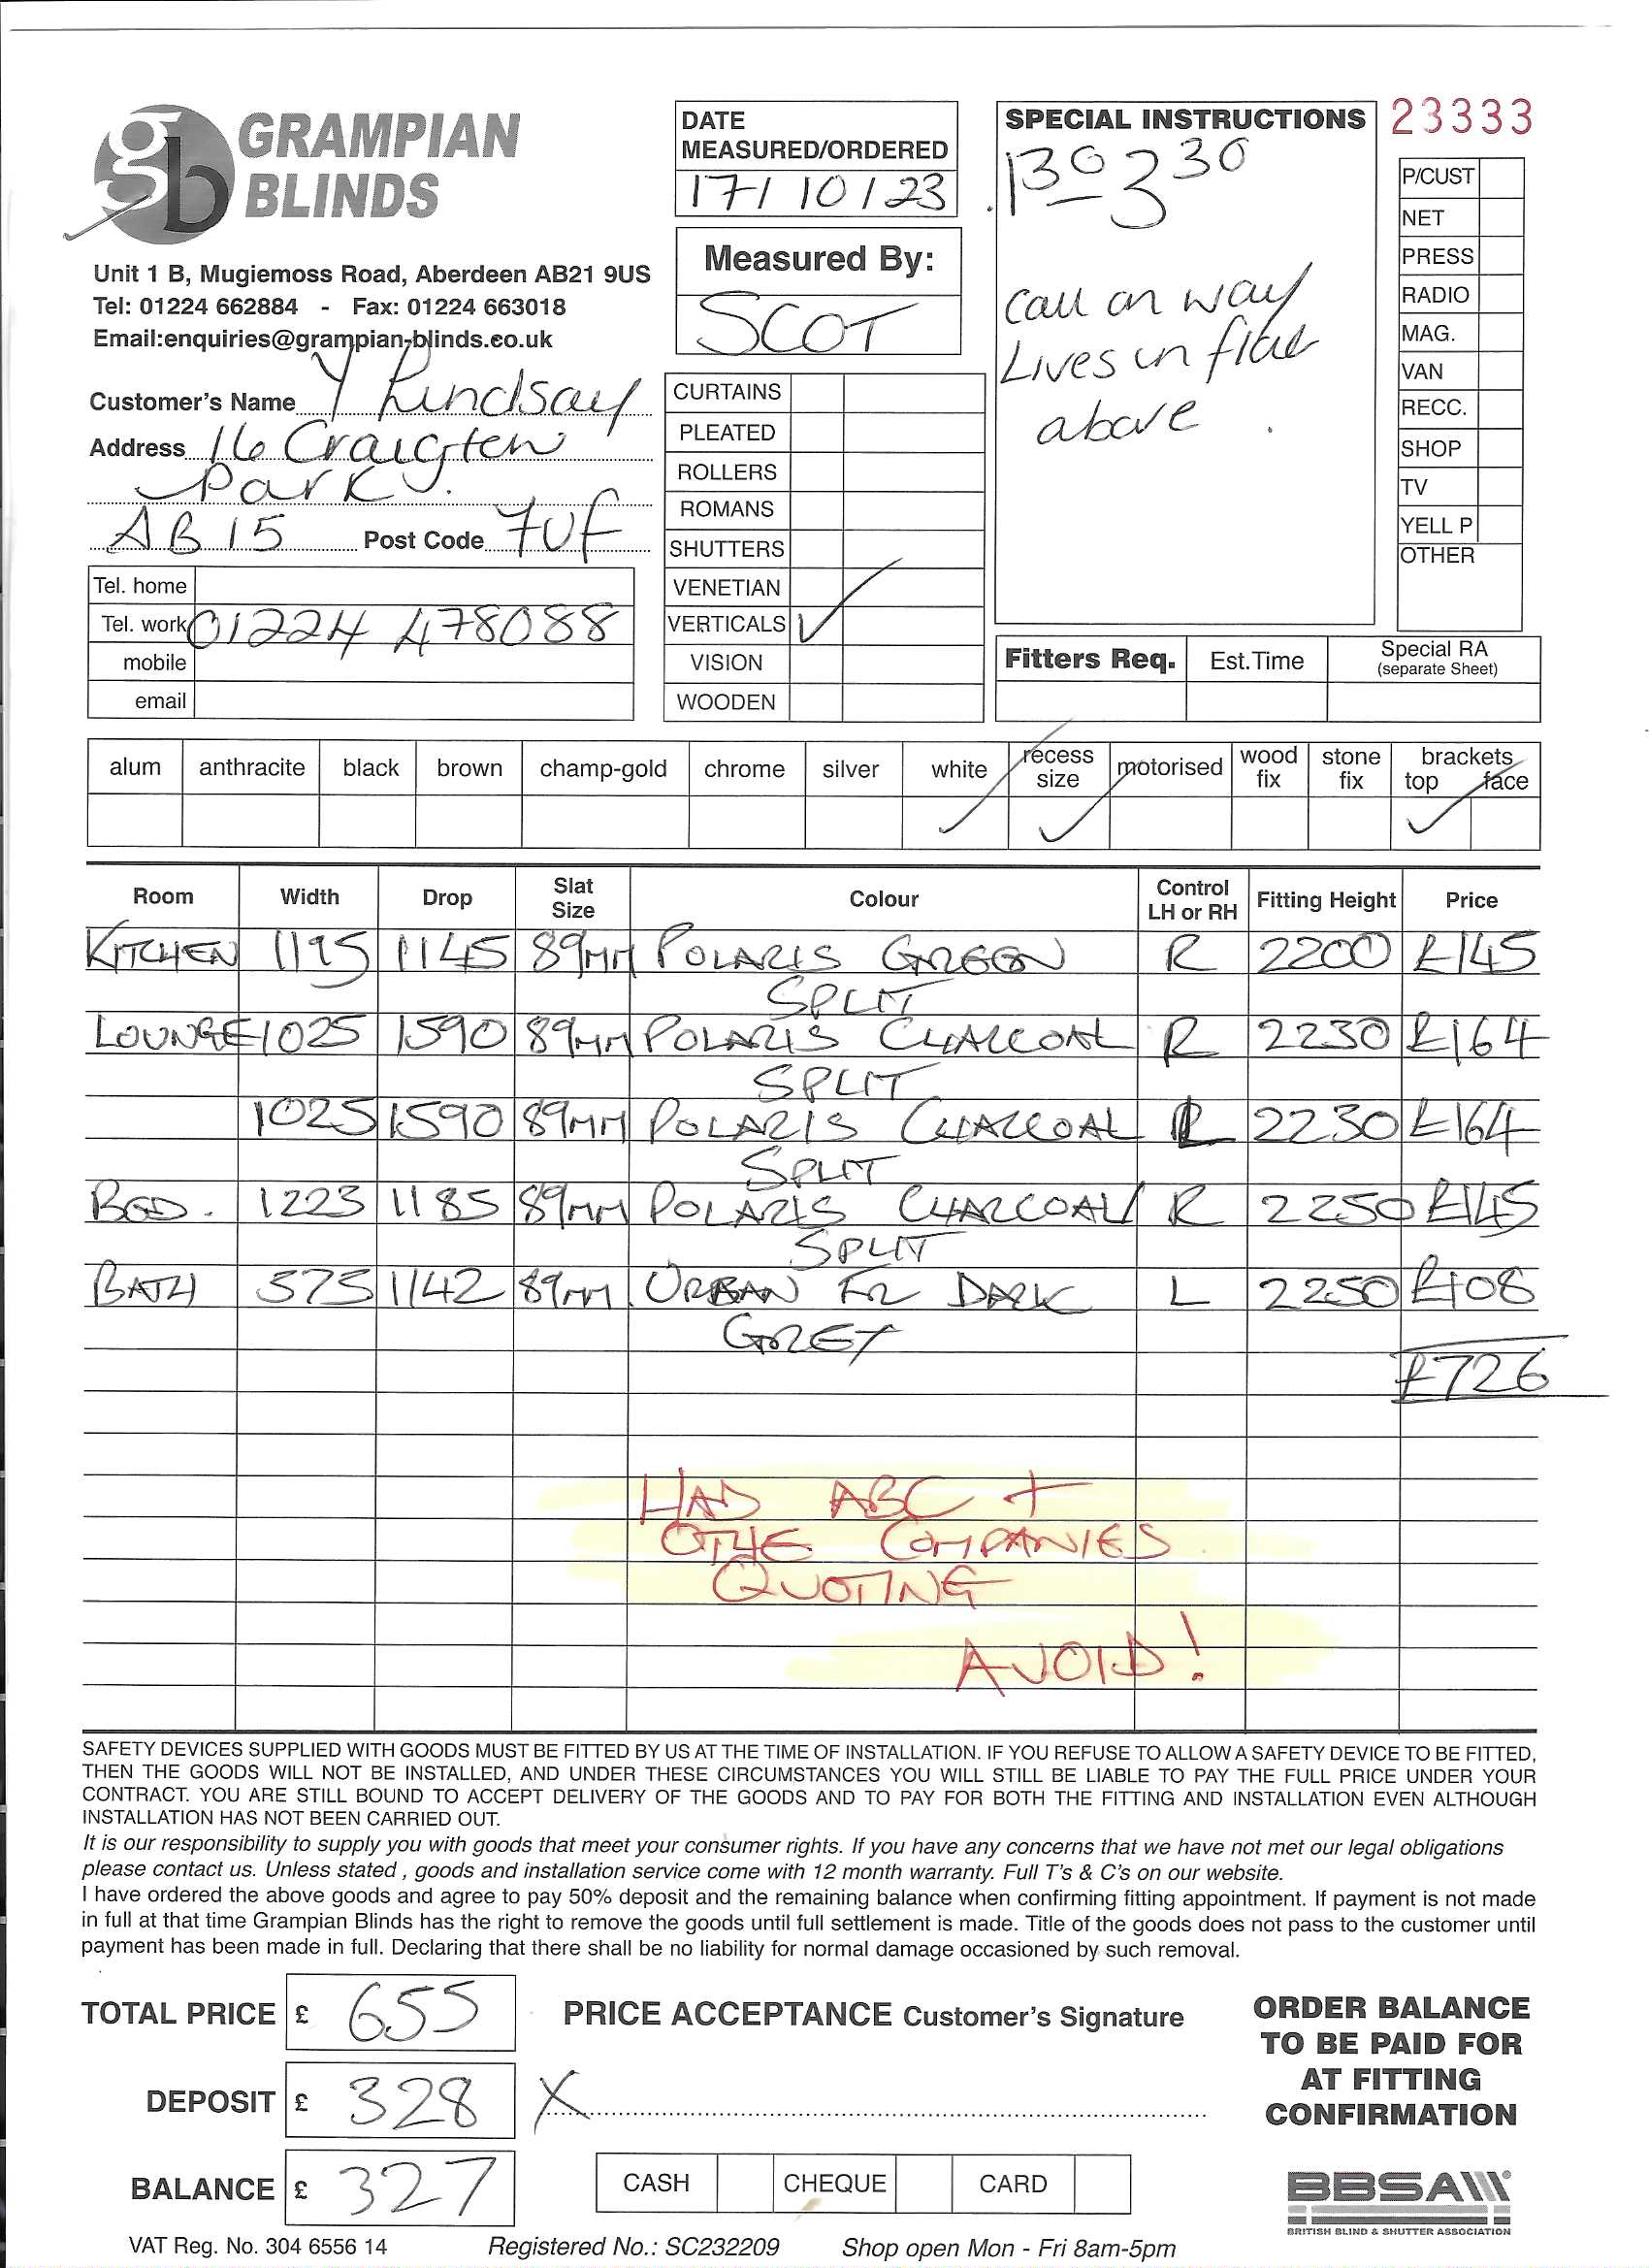 gb GRAMPIAN
BLINDS
Unit 1 B, Mugiemoss Road, Aberdeen AB21 9US
Tel: 01224 662884 - Fax: 01224 663018
Email:enquiries@grampian-blinds.co.uk
Customer's Name Y Lindsay
Address 16 Craigton
Park.
AB 15 Post Code 7UF
Tel. home
Tel. work 01224 478088
mobile
email
DATE
MEASURED/ORDERED
17/10/23
Measured By:
SCOT
CURTAINS
PLEATED
ROLLERS
ROMANS
SHUTTERS
VENETIAN
VERTICALS ✓
VISION
WOODEN
SPECIAL INSTRUCTIONS
1 30 - 3 30
Call on way
Lives in flat
above.
23333
P/CUST
NET
PRESS
RADIO
MAG.
VAN
RECC.
SHOP
TV
YELL P
OTHER
Fitters Req. Est.Time Special RA
(separate Sheet)
alum anthracite black brown champ-gold chrome silver white recess size motorised wood fix stone fix brackets top face
✓ ✓ ✓
Room Width Drop Slat Size Colour Control LH or RH Fitting Height Price
KITCHEN 1195 1145 89MM POLARIS GREEN R 2200 £145
SPLIT
LOUNGE 1025 1590 89MM POLARIS CHARCOAL R 2230 £164
SPLIT
1025 1590 89MM POLARIS CHARCOAL L 2230 £164
SPLIT
BED. 1223 1185 89MM POLARIS CHARCOAL R 2250 £145
SPLIT
BATH 575 1142 89MM URBAN FR DARK L 2250 £108
GREY
£726
HAD ABC +
OTHE COMPANIES
QUOTING
AVOID!
SAFETY DEVICES SUPPLIED WITH GOODS MUST BE FITTED BY US AT THE TIME OF INSTALLATION. IF YOU REFUSE TO ALLOW A SAFETY DEVICE TO BE FITTED,
THEN THE GOODS WILL NOT BE INSTALLED, AND UNDER THESE CIRCUMSTANCES YOU WILL STILL BE LIABLE TO PAY THE FULL PRICE UNDER YOUR
CONTRACT. YOU ARE STILL BOUND TO ACCEPT DELIVERY OF THE GOODS AND TO PAY FOR BOTH THE FITTING AND INSTALLATION EVEN ALTHOUGH
INSTALLATION HAS NOT BEEN CARRIED OUT.
It is our responsibility to supply you with goods that meet your consumer rights. If you have any concerns that we have not met our legal obligations
please contact us. Unless stated , goods and installation service come with 12 month warranty. Full T's & C's on our website.
I have ordered the above goods and agree to pay 50% deposit and the remaining balance when confirming fitting appointment. If payment is not made
in full at that time Grampian Blinds has the right to remove the goods until full settlement is made. Title of the goods does not pass to the customer until
payment has been made in full. Declaring that there shall be no liability for normal damage occasioned by such removal.
TOTAL PRICE £ 655
DEPOSIT £ 328
BALANCE £ 327
PRICE ACCEPTANCE Customer's Signature
X
CASH CHEQUE CARD
ORDER BALANCE
TO BE PAID FOR
AT FITTING
CONFIRMATION
BBSA
BRITISH BLIND & SHUTTER ASSOCIATION
VAT Reg. No. 304 6556 14 Registered No.: SC232209 Shop open Mon - Fri 8am-5pm